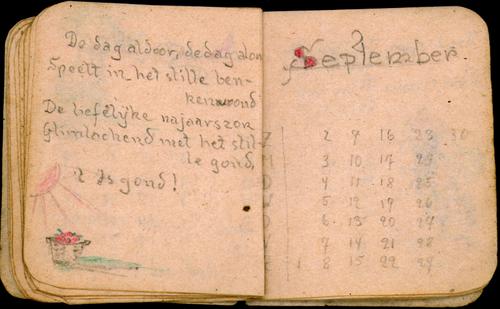 De dag aldoor, de dag alom
Speelt in het stille beu-
kenwoud
De liefelijke najaarszon
Glimlachend met het stil-
le goud.
't Is goud!
September
Z 2 9 16 23 30
M 3 10 17 24
D 4 11 18 25
W 5 12 19 26
D 6 13 20 27
V 7 14 21 28
Z 1 8 15 22 29